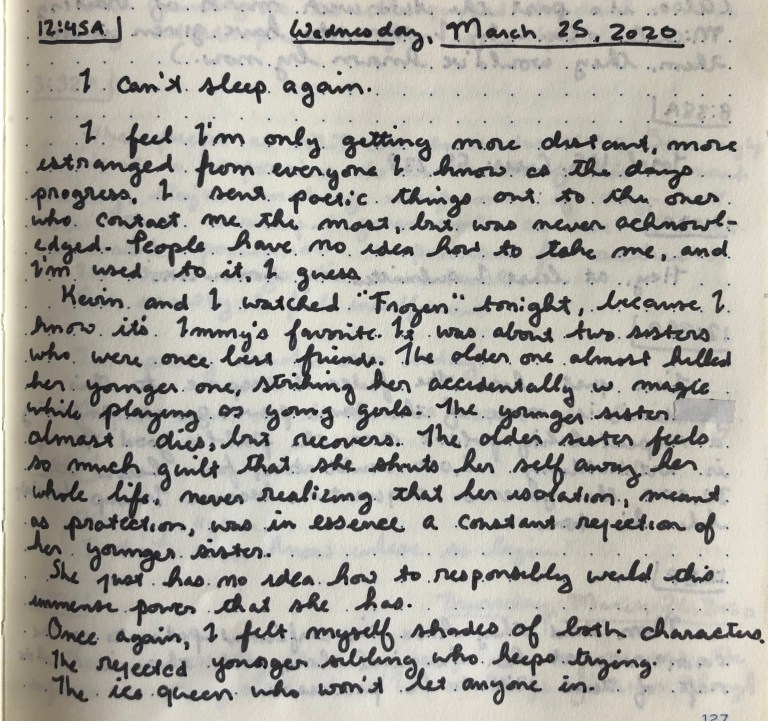 12:45A Wednesday, March 25, 2020
I can't sleep again.
I feel I'm only getting more distant, more
estranged from everyone I know as the days
progress. I sent poetic things out to the ones
who contact me the most, but was never acknowl-
edged. People have no idea how to take me, and
I'm used to it, I guess
Kevin and I watched "Frozen" tonight, because I
know it's Immy's favorite. It was about two sisters
who were once best friends. The older one almost killed
her younger one, striking her accidentally w magic
while playing as young girls. The younger sister
almost dies, but recovers. The older sister feels
so much guilt that she shuts her self away her
whole life, never realizing that her isolation, meant
as protection, was in essence a constant rejection of
her younger sister.
She just has no idea how to responsibly weild this
immense power that she has.
Once again, I felt myself shades of both characters.
The rejected younger sibling who keeps trying.
The ice queen who won't let anyone in.
127